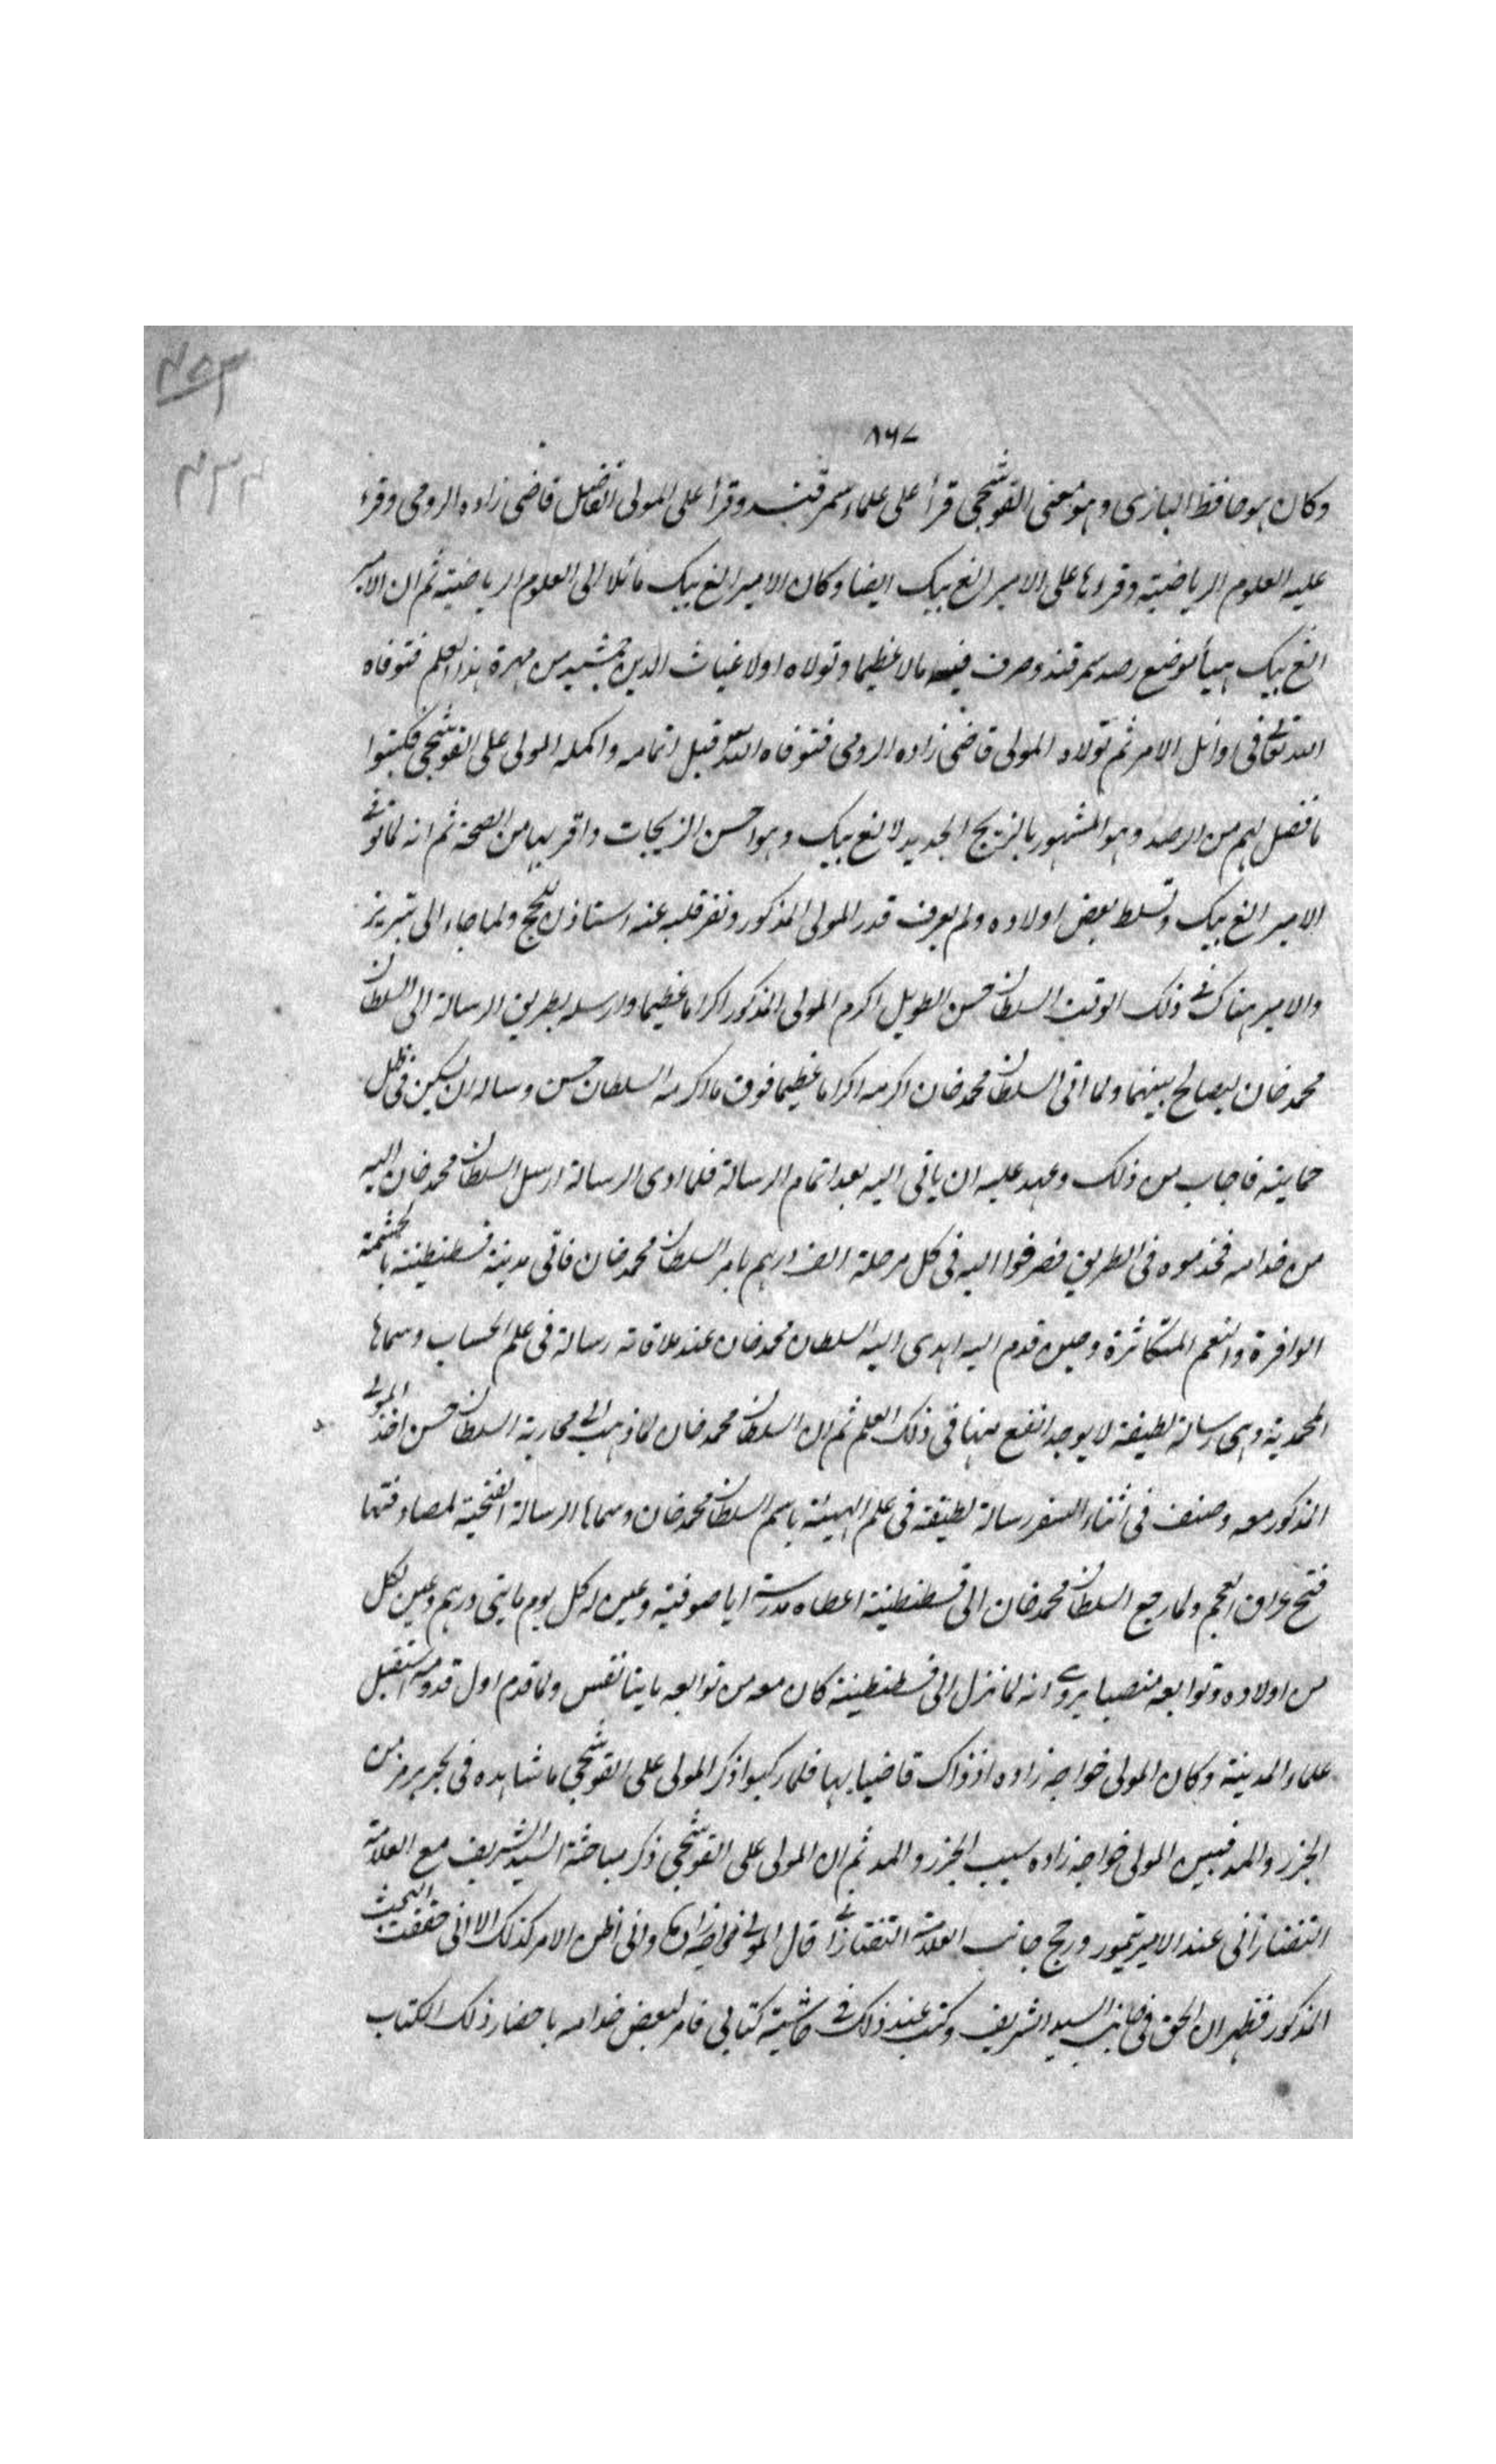 ٨٦٧
وكان هو حافظ البازى وهو معنى القوشجى قرأ على علماء سمرقند وقرأ على المولى الفاضل قاضى زاده الرومى وقرء
عليه العلوم الرياضية وقرءها على الامير الغ بيك ايضا وكان الامير الغ بيك مائلا الى العلوم الرياضية ثم ان الامير
الغ بيك هيأ موضع رصد سمرقند وصرف فيه مالا عظيما وتولاه اولا غياث الدين جمشيد من مهرة هذا العلم فتوفاه
الله تعالى فى اوائل الامر ثم تولاه المولى قاضى زاده الرومى فتوفاه الله قبل اتمامه واكمله المولى على القوشجى فكتبوا
ما فضل لهم من الرصد وهو المشهور بالزيج الجديد لالغ بيك وهو احسن الزيجات واقربها من الصحة ثم انه لما توفى
الامير الغ بيك وتسلط بعض اولاده ولم يعرف قدر المولى المذكور ونفر قلبه عنه استاذن للحج ولما جاء الى تبريز
والامير هناك فى ذلك الوقت السلطان حسن الطويل اكرم المولى المذكور اكراما عظيما وارسله بطريق الرسالة الى السلطان
محمد خان ليصالح بينهما ولما اتى السلطان محمد خان اكرمه اكراما عظيما فوق ما اكرمه السلطان حسن وساله ان يسكن فى ظل
حمايته فاجاب من ذلك وعهد عليه ان ياتى اليه بعد اتمام الرسالة فلما ادى الرسالة ارسل السلطان محمد خان اليه
من خدامه فخدموه فى الطريق فصرفوا اليه فى كل مرحلة الف درهم بامر السلطان محمد خان فاتى مدينة قسطنطينة بالحشمة
الوافرة والنعم المتكاثرة وحين قدم اليه اهدى اليه السلطان محمد خان عند ملاقاته رسالة فى علم الحساب وسماها
المحمدية وهى رسالة لطيفة لا يوجد انفع منها فى ذلك العلم ثم ان السلطان محمد خان لما ذهب الى محاربة السلطان حسن اخذ المولى
المذكور معه وصنف فى اثناء السفر رسالة لطيفة فى علم الهيئة باسم السلطان محمد خان وسماها الرسالة الفتحية لمصادفتها
فتح عراق العجم ولما رجع السلطان محمد خان الى قسطنطينة اعطاه مدرسة ايا صوفية وعين له كل يوم مايتى درهم وعين لكل
من اولاده وتوابعه منصبا يروى انه لما نزل الى قسطنطينة كان معه من توابعه مايتا نفس ولما قدم اول قدومه استقبل
علماء المدينة وكان المولى خواجه زاده اذ ذاك قاضيا بها فلما ركبوا ذكر المولى على القوشجى ما شاهده فى بحر هرمز من
الجزر والمد فبين المولى خواجه زاده سبب الجزر والمد ثم ان المولى على القوشجى ذكر مباحثة السيد الشريف مع العلامة
التفتازانى عند الامير تيمور ورجح جانب العلامة التفتازانى قال المولى خواجه زاده وانى اظن الامر كذلك الا انى حققت البحث
المذكور فظهر ان الحق فى جانب السيد الشريف وكتبت عند ذلك فى حاشية كتابى فامر لبعض خدامه باحضار ذلك الكتاب